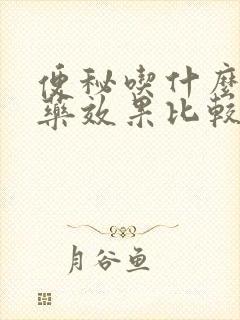 便秘喫什麼
藥效果比較
月谷鱼